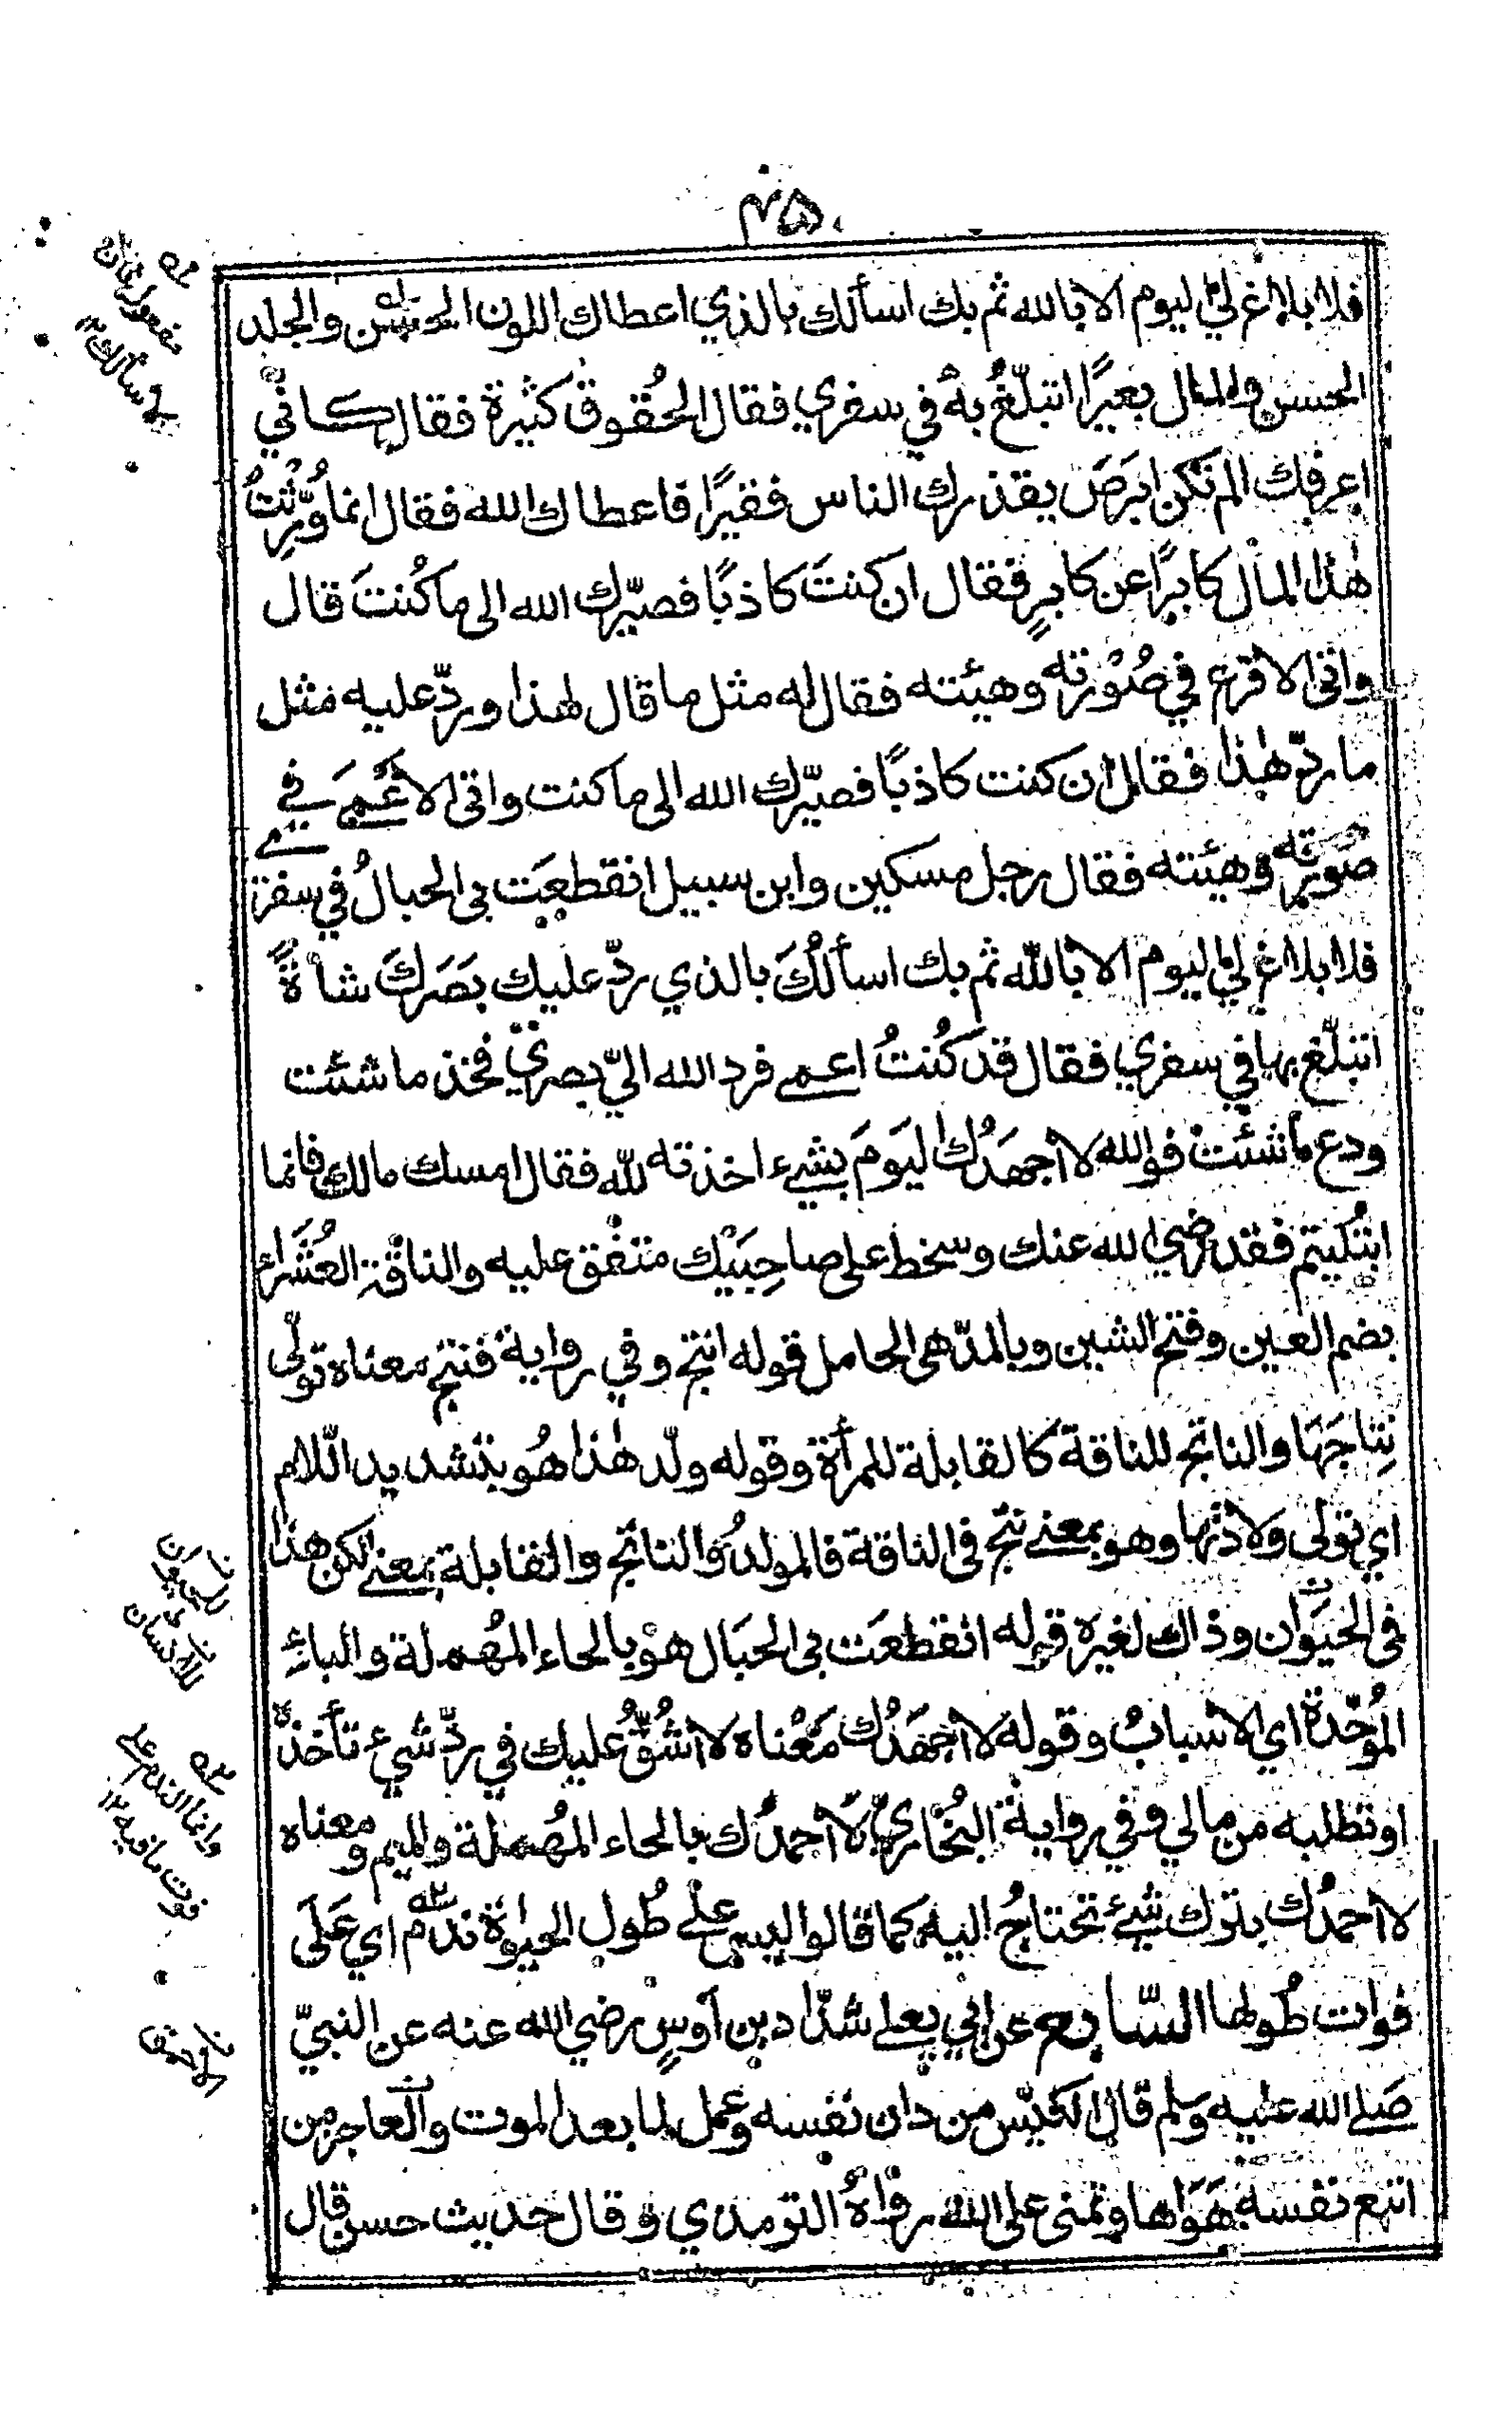 ٤٥
فلا بلاغ لي اليوم الا بالله ثم بك اسألك بالذي اعطاك اللون الحسن والجلد
الحسن والمال بعيرًا اتبلّغُ به في سفري فقال الحُقوق كثيرة فقال كأنّي
اعرفك الم تكن ابرَصَ يقذرك الناس فقيرًا فاعطاك الله فقال انما وُرِّثتُ
هٰذا المال كابرًا عن كابرٍ فقال ان كنتَ كاذبًا فصيّرك الله الى ما كُنتَ قال
واتى الاقرع في صُوْرته وهيئته فقال له مثل ما قال لهذا وردّ عليه مثل
ما ردّ هٰذا فقال ان كنت كاذبًا فصيّرك الله الى ما كنت واتى الاَعْمَى في
صُوَرته وهيئته فقال رجل مسكين وابن سبيل انقطعَت بي الحبالُ في سفري
فلا بلاغ لي اليوم الا باللّٰه ثم بك اسألُكَ بالذي ردّ عليك بَصَرَكَ شاةً
اتبلّغ بها في سفري فقال قد كُنتُ اعمى فرد الله اليّ بصري فخذ ما شئت
ودع ما شئت فوالله لا اجهَدُك اليَومَ بشيء اخذته للّٰه فقال امسك مالك فانما
ابتُليتم فقد رضي الله عنك وسخط على صاحِبَيْك متفق عليه والناقة العُشَراءُ
بضم العين وفتح الشين وبالمدّ هي الحامل قوله انتج وفي رواية فنتج معناه تولّى
نِتاجَهَا والناتج للناقة كالقابلة للمرأة وقوله ولّد هٰذا هُو بتشديد اللّام
اي تولى ولادتها وهو بمعنى نتج في الناقة فالمولدُ والناتج والقابلة بمعنى لكن هذا
في الحيوَان وذاك لغيره قوله انقطعَت بي الحبَال هو بالحاء المُهملة والباءِ
المُوحّدة اي الاسبابُ وقوله لا اجهَدُك مَعْناه لا اشُقُّ عليك في ردّ شيء تأخذه
او تطلبه من مالي وفي رواية البُخاريّ لا احمدُك بالحاء المُهملة والميم ومعناه
لا احمدُك بترك شيء تحتاجُ اليه كما قالوا ليس على طُول الحيٰوة ندم اي عَلَى
فوات طُولها السّابع عن ابي يعلى شدّاد بن اَوسٍ رضي الله عنه عن النبيّ
صَلى الله عليه وسلم قال الكيّس من دان نفسه وعمل لما بعد الموت والعاجز من
اتبع نفسه هَوَاها وتمنى على الله رواهُ الترمذي وقال حديث حسن قال
مفعول ثان
لاسألك
للانسان
وانما الندم على
فوت ما فيه ١٢